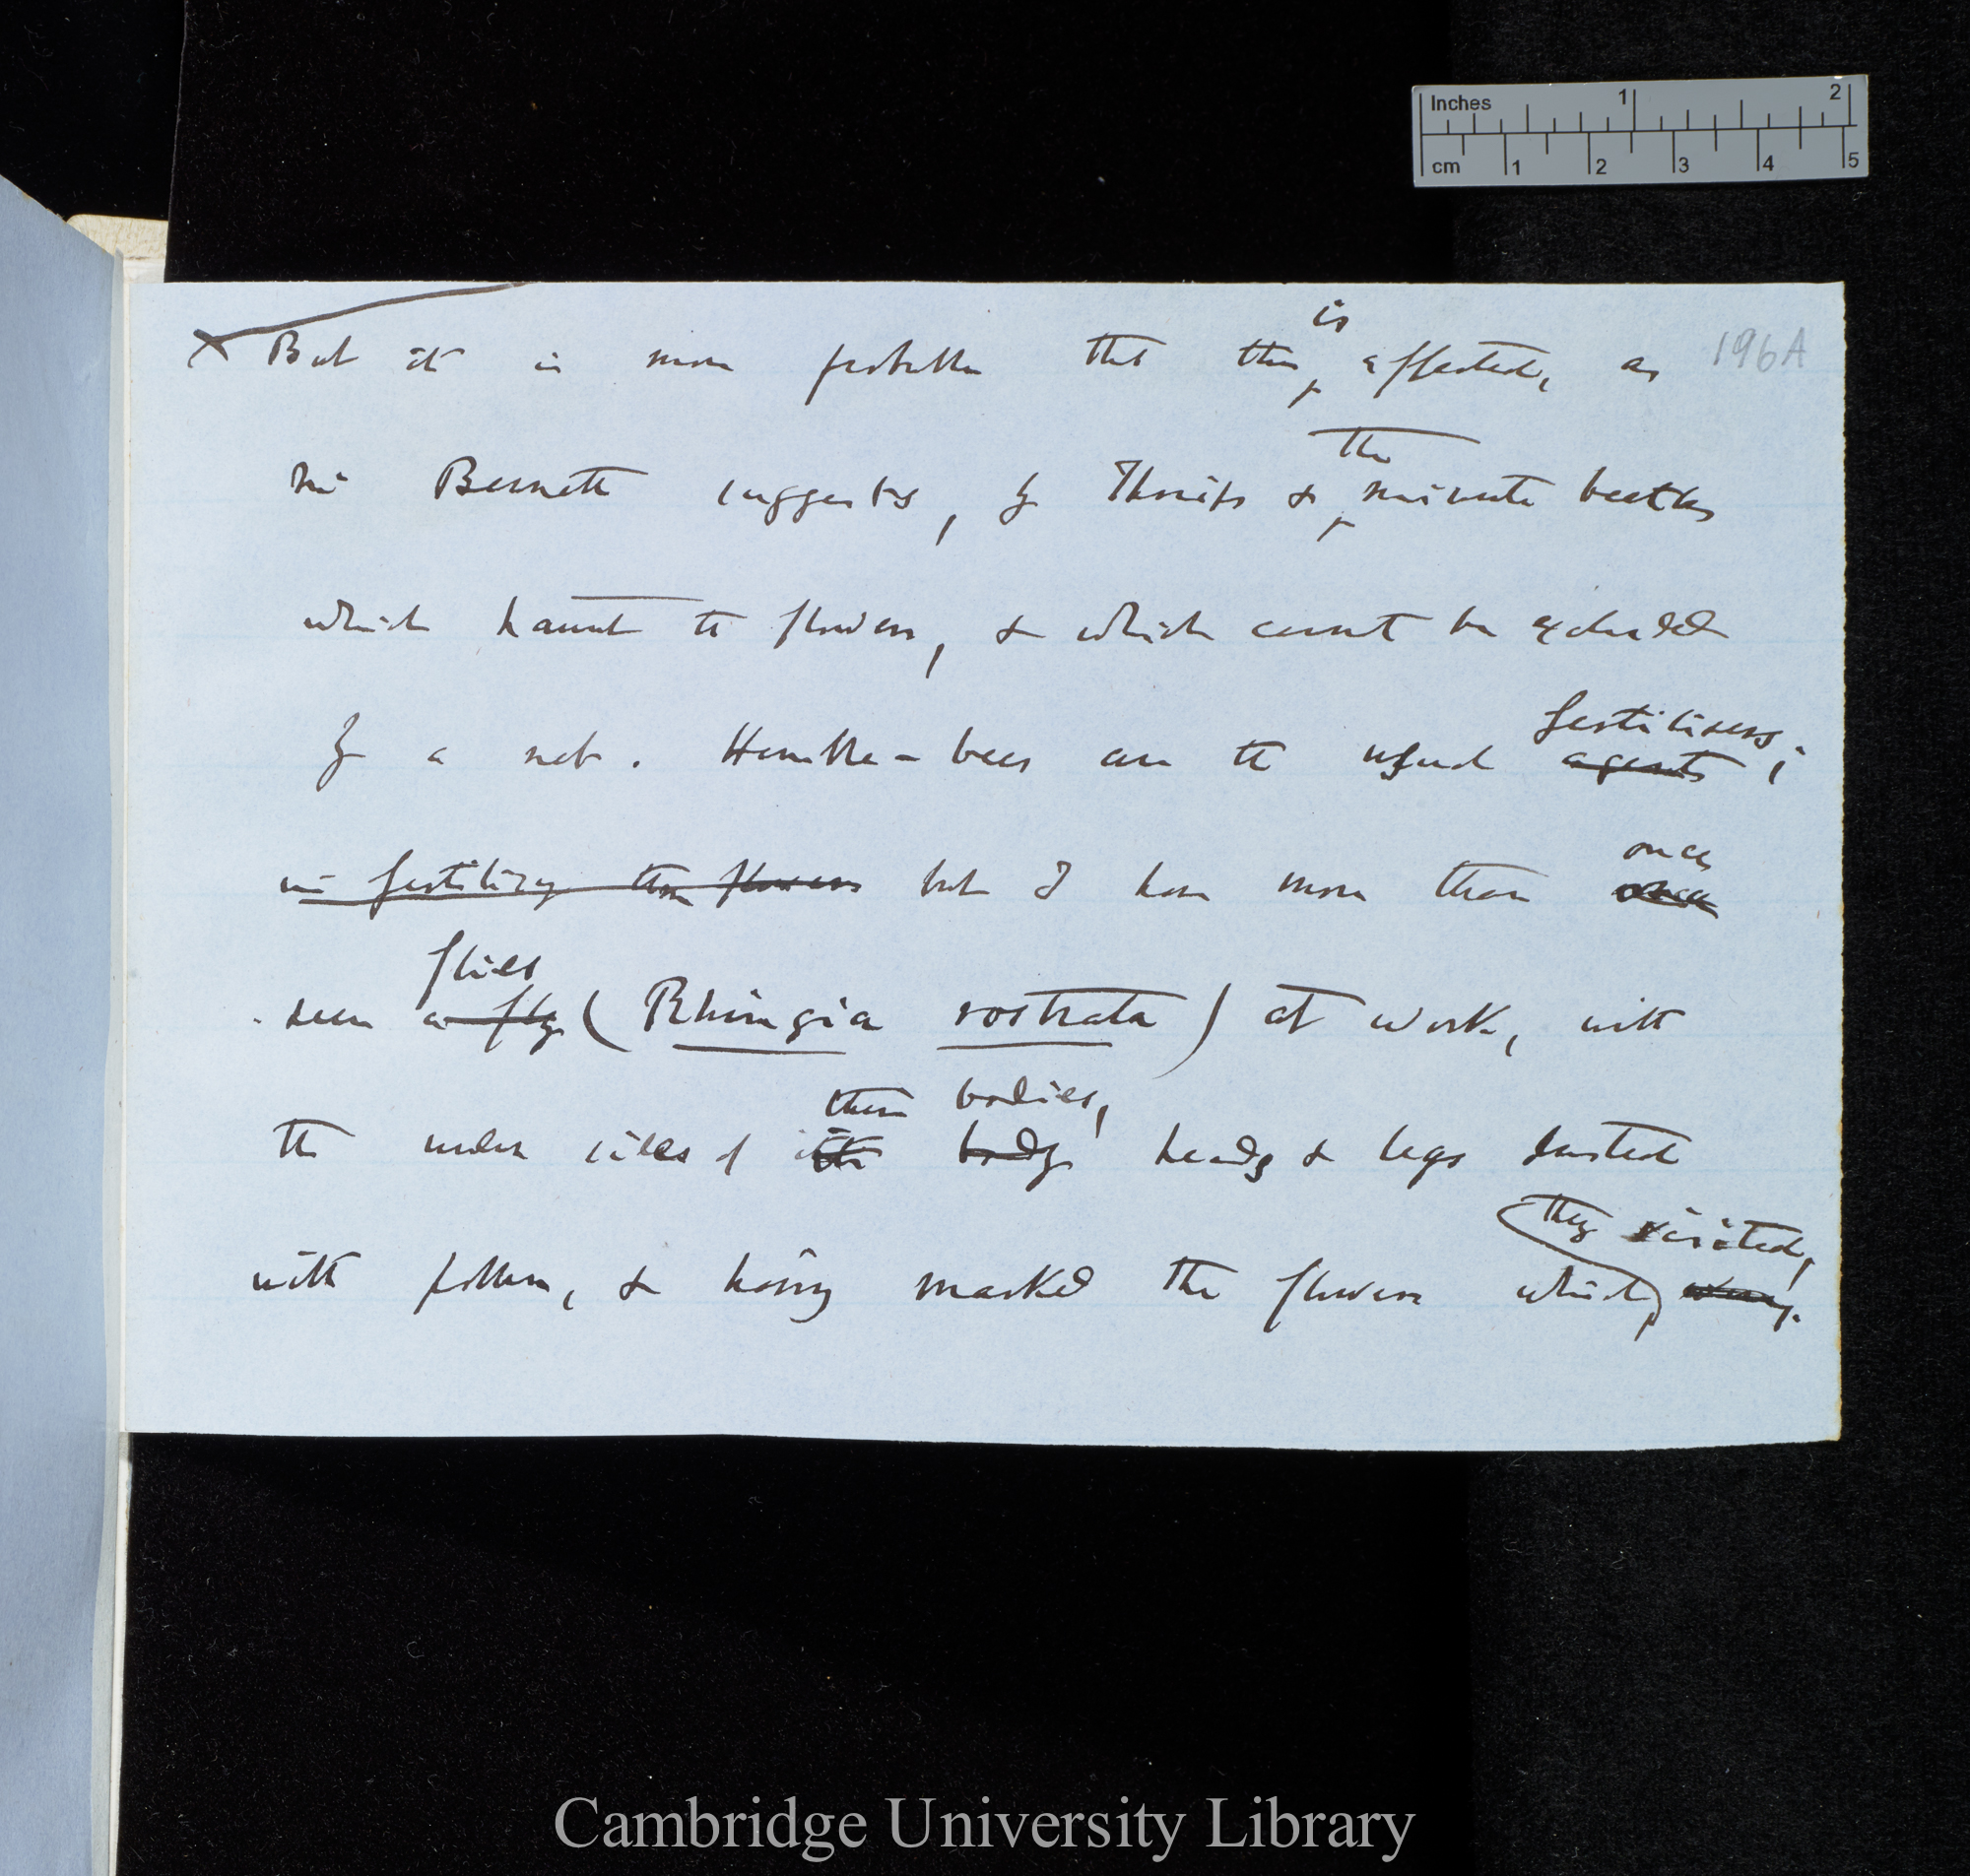 Inches 1 2
cm 1 2 3 4 5
196A
is
X But it is more probable that this ‸ affected, as
the
Mr Bennett suggests, by Thrips & ‸ minute beetles
which haunt the flowers, & which cannot be excluded
fertilisers;
by a net. Humble-bees are the usual agents;
once
in fertilizing the flowers but I have more than once
flies
seen a fly (Rhingia rostrata) at work, with
their bodies,
the under sides of its body heads & legs dusted
they visited,
with pollen, & having marked the flowers which
Cambridge University Library